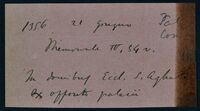 1356 21 Giugno
Memoriale IV, 34 v.
In domibus Eccl. S. Aghate
ex opposito palacii